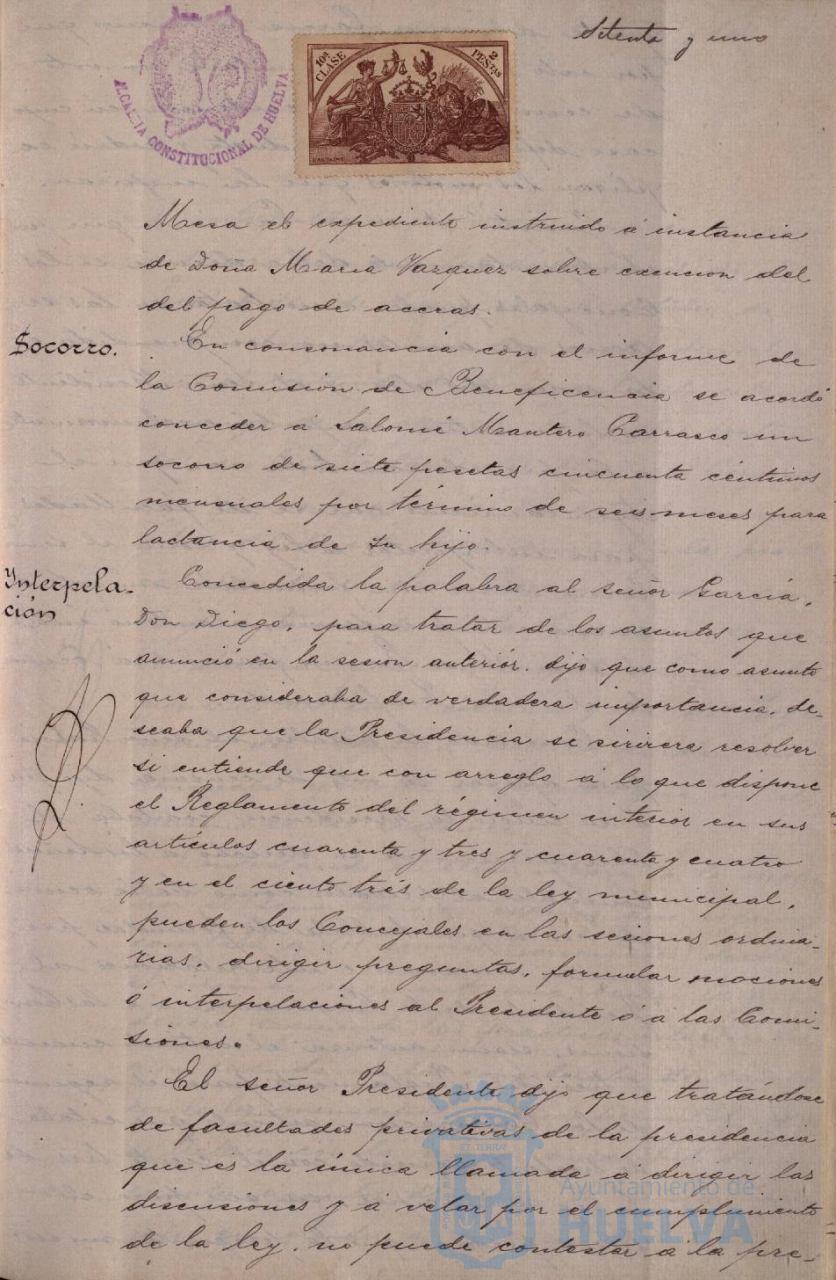 Setenta y uno
ALCALDIA CONSTITUCIONAL DE HUELVA
10ª CLASE
2 PESETAS
Mesa el expediente instruido á instancia
de Doña Maria Vazquez sobre exencion del
del pago de aceras.
Socorro.
En consonancia con el informe de
la Comisión de Beneficencia se acordó
conceder á Salomé Mantero Carrasco un
socorro de siete pesetas cincuenta céntimos
mensuales por término de seis meses para
lactancia de su hijo.
Interpela-
ción
Concedida la palabra al señor García,
Don Diego, para tratar de los asuntos que
anunció en la sesion anterior. dijo que como asunto
que consideraba de verdadera importancia, de-
seaba que la Presidencia se sirviera resolver
si entiende que con arreglo á lo que dispone
el Reglamento del régimen interior en sus
artículos cuarenta y tres y cuarenta y cuatro
y en el ciento trés de la ley municipal,
pueden los Concejales en las sesiones ordina-
rias, dirigir preguntas, formular mociones
ó interpelaciones al Presidente ó á las Comi-
siones.
El señor Presidente dijo que tratándose
de facultades privativas de la presidencia
que es la única llamada á dirigir las
discusiones y á velar por el cumplimiento
de la ley, no puede contestar á la pre-
Ayuntamiento de
HUELVA